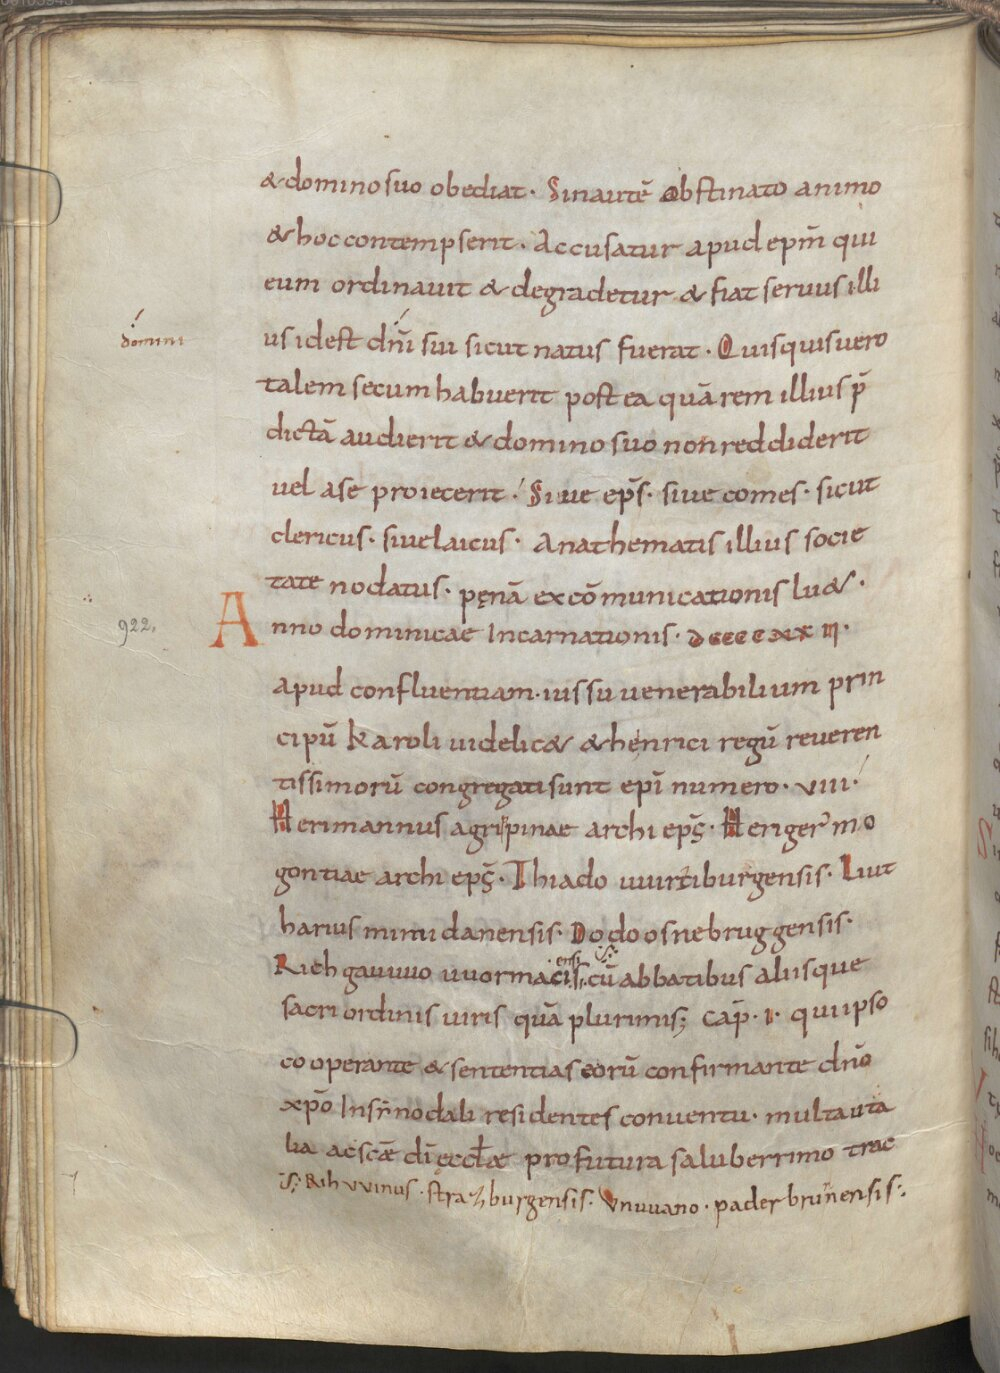 & domino suo obediat · Sin autē obstinato animo
& hoc contempserit · Accusatur apud ep̄m qui
eum ordinauit & degradetur & fiat seruus illi
us idest dn̄i sui sicut natus fuerat · Quisquis uero
domini
talem secum habuerit postea quā rem illius p̄
dictā audierit & domino suo non reddiderit
uel a se proiecerit · Siue ep̄s · siue comes · sicut
clericus · siue laicus · Anathematis illius socie
tate nodatus · pęnā excōmunicationis lu& ·
922.
Anno dominicae Incarnationis · dccccxxii ·
apud confluentiam · iussu uenerabilium prin
cipū karoli uidelic& & henrici regū reueren
tissimorū congregati sunt ep̄i numero · viii ·
Herimannus agrippinae archi ep̄s · Heriger mo
gontiae archi ep̄s · Thiado uuirtiburgensis · Liut
harius mimidanensis · Dodo osnebruggensis ·
ensis
Richgauuuo uuormacis · cū abbatibus aliisque
sacri ordinis uiris quā plurimis; cap̄ · i · qui ipso
cooperante & sententias eorū confirmante dn̄o
xp̄o In synodali residentes conuentu · multa uta
lia ac sc̄ae dī ęccl̄ae profutura saluberrimo trac
·S· Rihvvinus · strazburgensis · Vnuuano · paderbrunnensis ·